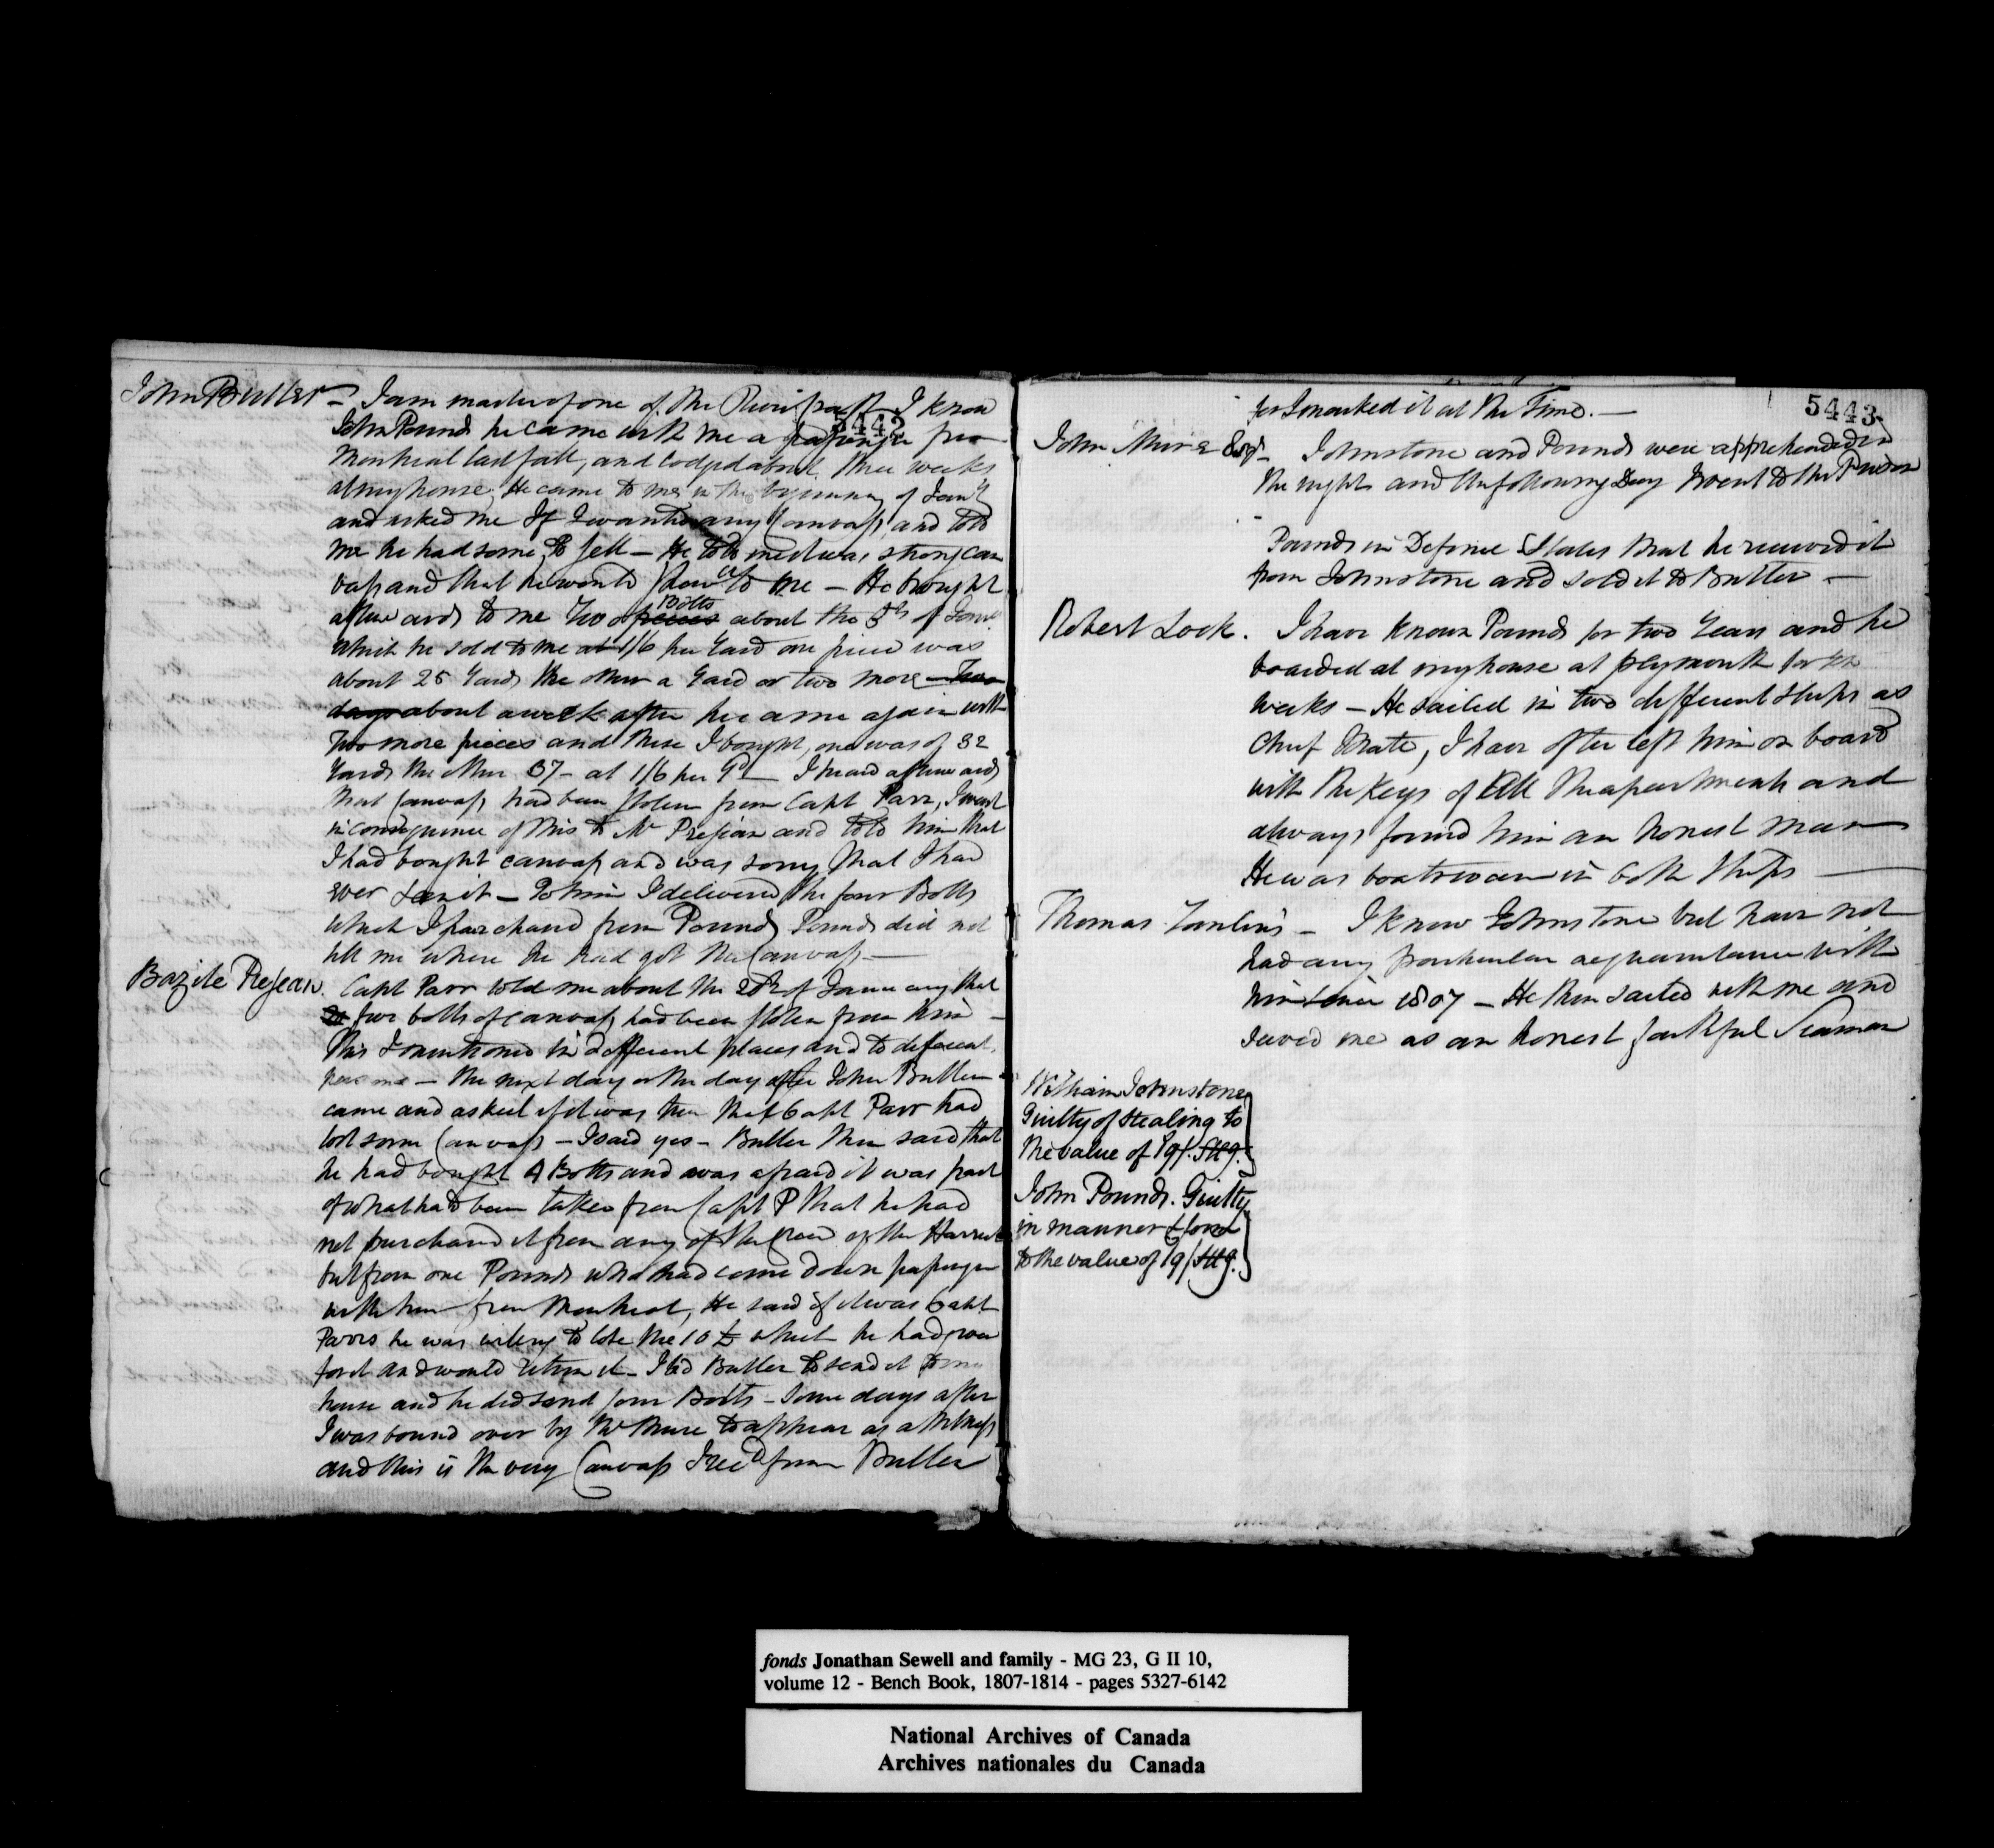 John Butler – I am master of one of the River Craft I know
5442
John Pounds he came with me a passenger from
Montreal last fall, and lodged about three weeks
at my house, He came to me in the beginning of Jany
and asked me If I wanted any Canvass and told
me he had some to sell – He told me it was strong can
vass and that he would shew it to me – He brought
afterwards to me two pieces Bolts about the 5th of Jany
which he sold to me at 1/6 per Yard one piece was
about 25 Yards the other a Yard or two more – Two
days about a week after he came again with
two more pieces and these I bought, one was of 32
Yards the other 37 – at 1/6 per Yd – I heard afterwards
that Canvass had been stolen from Capt Parr, I went
in consequence of this to Mr Prejean and told him that
I had bought canvass and was sorry that I had
ever seen it – To him I delivered the four Bolts
which I purchased from Pounds Pounds did not
tell me where he had got the Canvass –
Bazile Prejean. Capt Parr told me about the 20th of January that
five bolts of canvass had been stolen from him –
This I mentioned in different places and to different
persons – the next day or the day after John Butler
came and asked if it was true that Capt Parr had
lost some Canvass – I said yes – Butler then said that
he had bought 4 Bolts and was afraid it was part
of what had been taken from Capt P that he had
not purchased it from any of the Crew of the Harriet
but from one Pounds who had come down passenger
with him from Montreal, He said if it was Capt
Parrs he was willing to lose the 10 £ which he had given
for it and would return it – I bid Butler to send it to my
house and he did send four Bolts – Some days after
I was bound over by Mr Mure to appear as a Witness
and this is the very Canvass I recd from Butler
5443
for I marked it at the Time. –
John Mure Esqr – Johnstone and Pounds were apprehended in
the night and the following Day I went to the Prison
Pounds in Defence States that he received it
from Johnstone and sold it to Butler –
Robert Lock. I have known Pounds for two Years and he
boarded at my house at plymouth for six
weeks – He sailed in two different ships as
Chief Mate, I have often left him on board
with the Keys of all the apartments and
always found him an honest man
He was boatswain in both Ships –
Thomas Tomlins – I know Johnstone but have not
had any particular acquaintance with
him since 1807 – He then sailed with me and
served me as an honest faithful Seaman
William Johnstone
Guilty of stealing to
the value of 19/. Stg.
John Pounds. Guilty
in manner & form
to the value of 19/ Stg.
fonds Jonathan Sewell and family - MG 23, G II 10,
volume 12 - Bench Book, 1807-1814 - pages 5327-6142
National Archives of Canada
Archives nationales du Canada